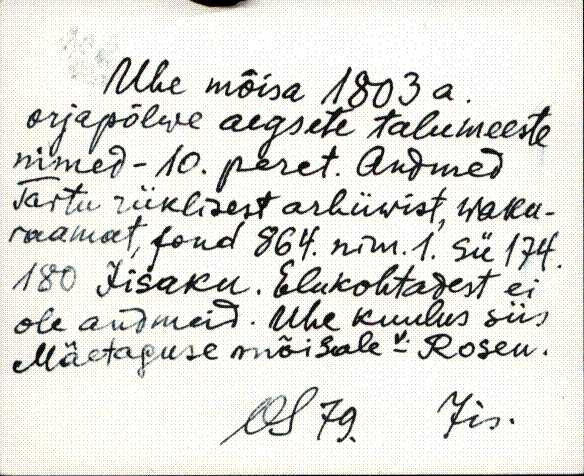 Uhe mõisa 1803 a.
orjapõlwe aegsete talumeeste
nimed - 10. peret. Andmed
Tartu riiklisest arhiiwist, waku-
raamat, fond 864. nim. 1. sü 174.
180 Jisaku. Elukohtadest ei
ole andmeid. Uhe kuulus siis
Mäetaguse mõisale v. Rosen.
OS 79. Jis.